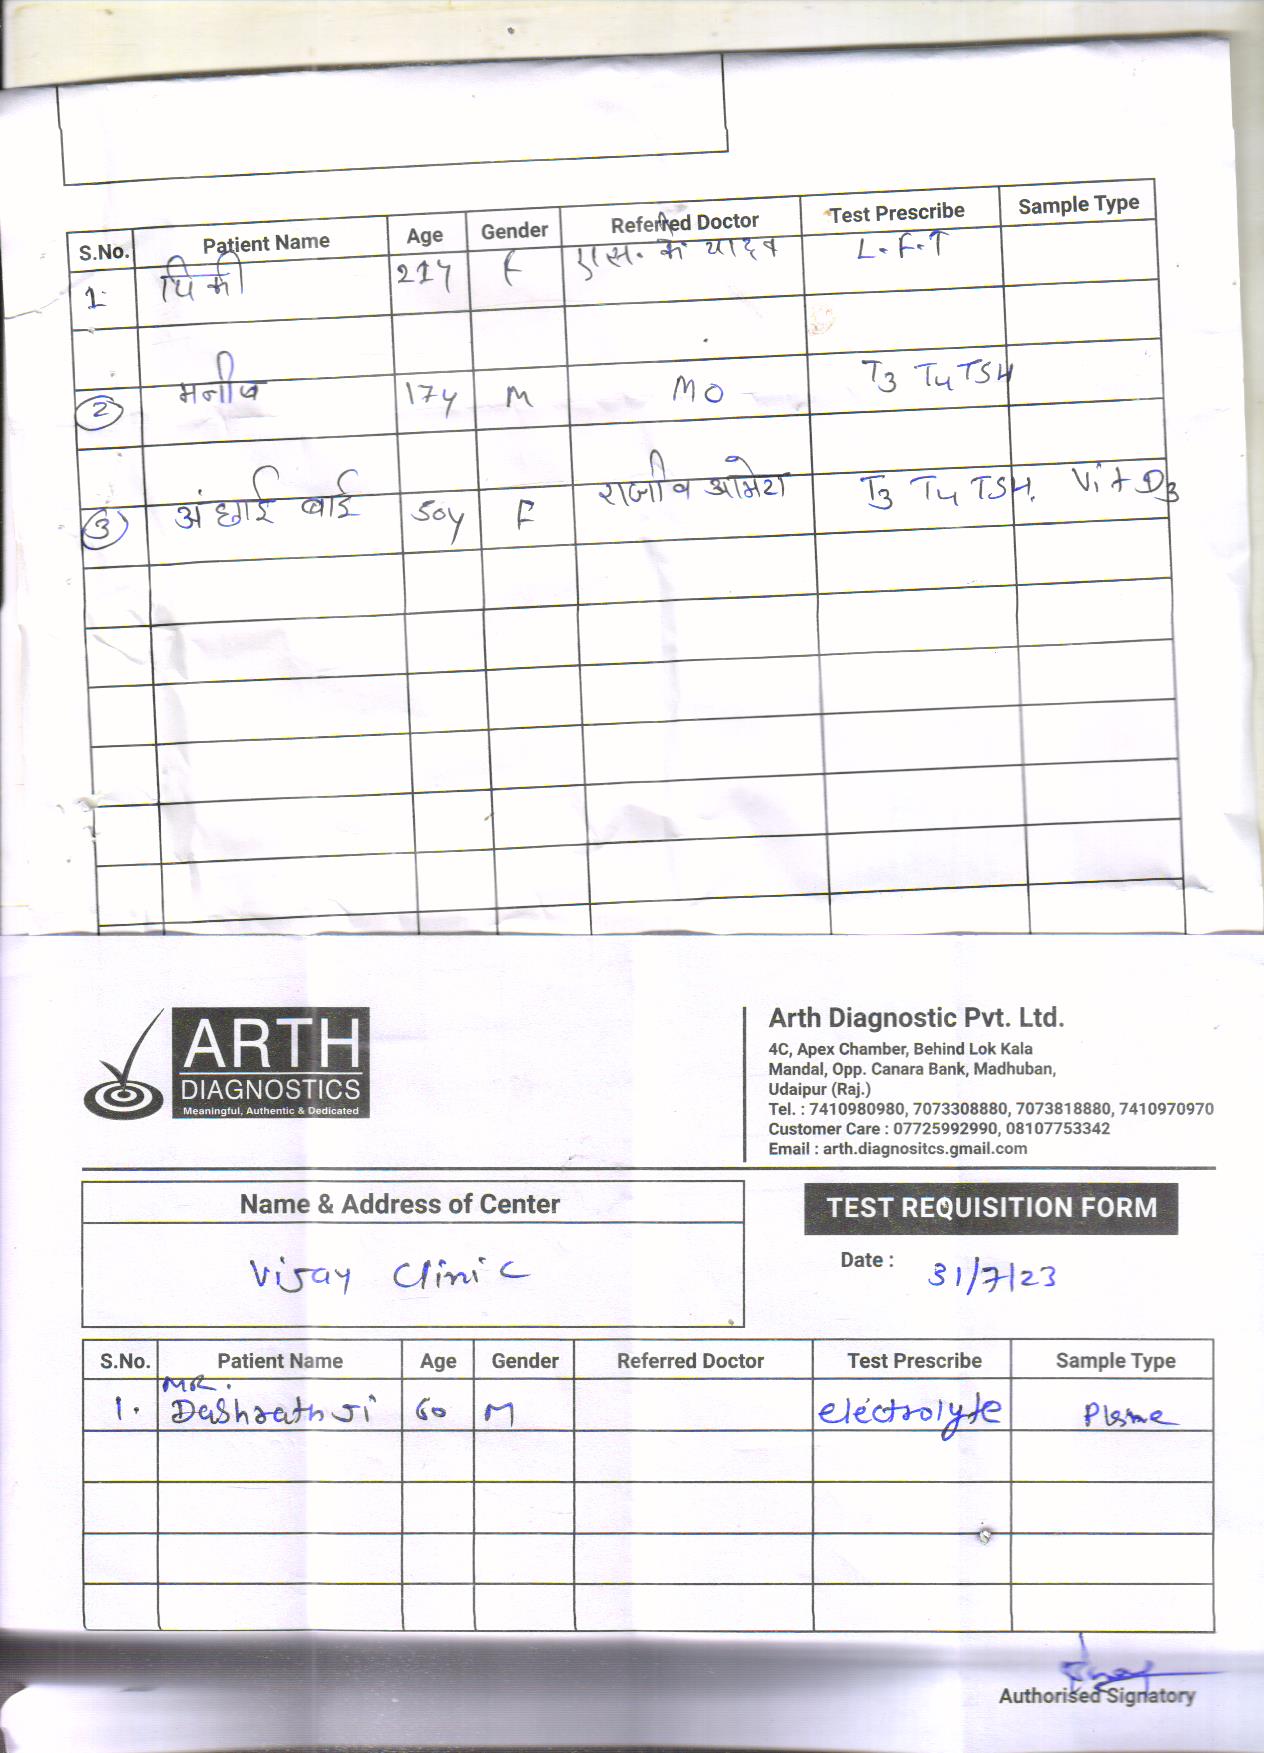 S.No. Patient Name Age Gender Referred Doctor Test Prescribe Sample Type
1. पिंकी 21y F एस. के यादव L.F.T
2 मनीष 17y M MO T3 T4 TSH
3 बाई 50y F राजीव आमेटा T3 T4 TSH. Vit D3
ARTH
DIAGNOSTICS
Meaningful, Authentic & Dedicated
Arth Diagnostic Pvt. Ltd.
4C, Apex Chamber, Behind Lok Kala
Mandal, Opp. Canara Bank, Madhuban,
Udaipur (Raj.)
Tel. : 7410980980, 7073308880, 7073818880, 7410970970
Customer Care : 07725992990, 08107753342
Email : arth.diagnositcs.gmail.com
Name & Address of Center
Vijay Clinic
TEST REQUISITION FORM
Date : 31/7/23
S.No. Patient Name Age Gender Referred Doctor Test Prescribe Sample Type
MR.
1. Dashrath Ji 60 M electrolyte Plasma
Authorised Signatory